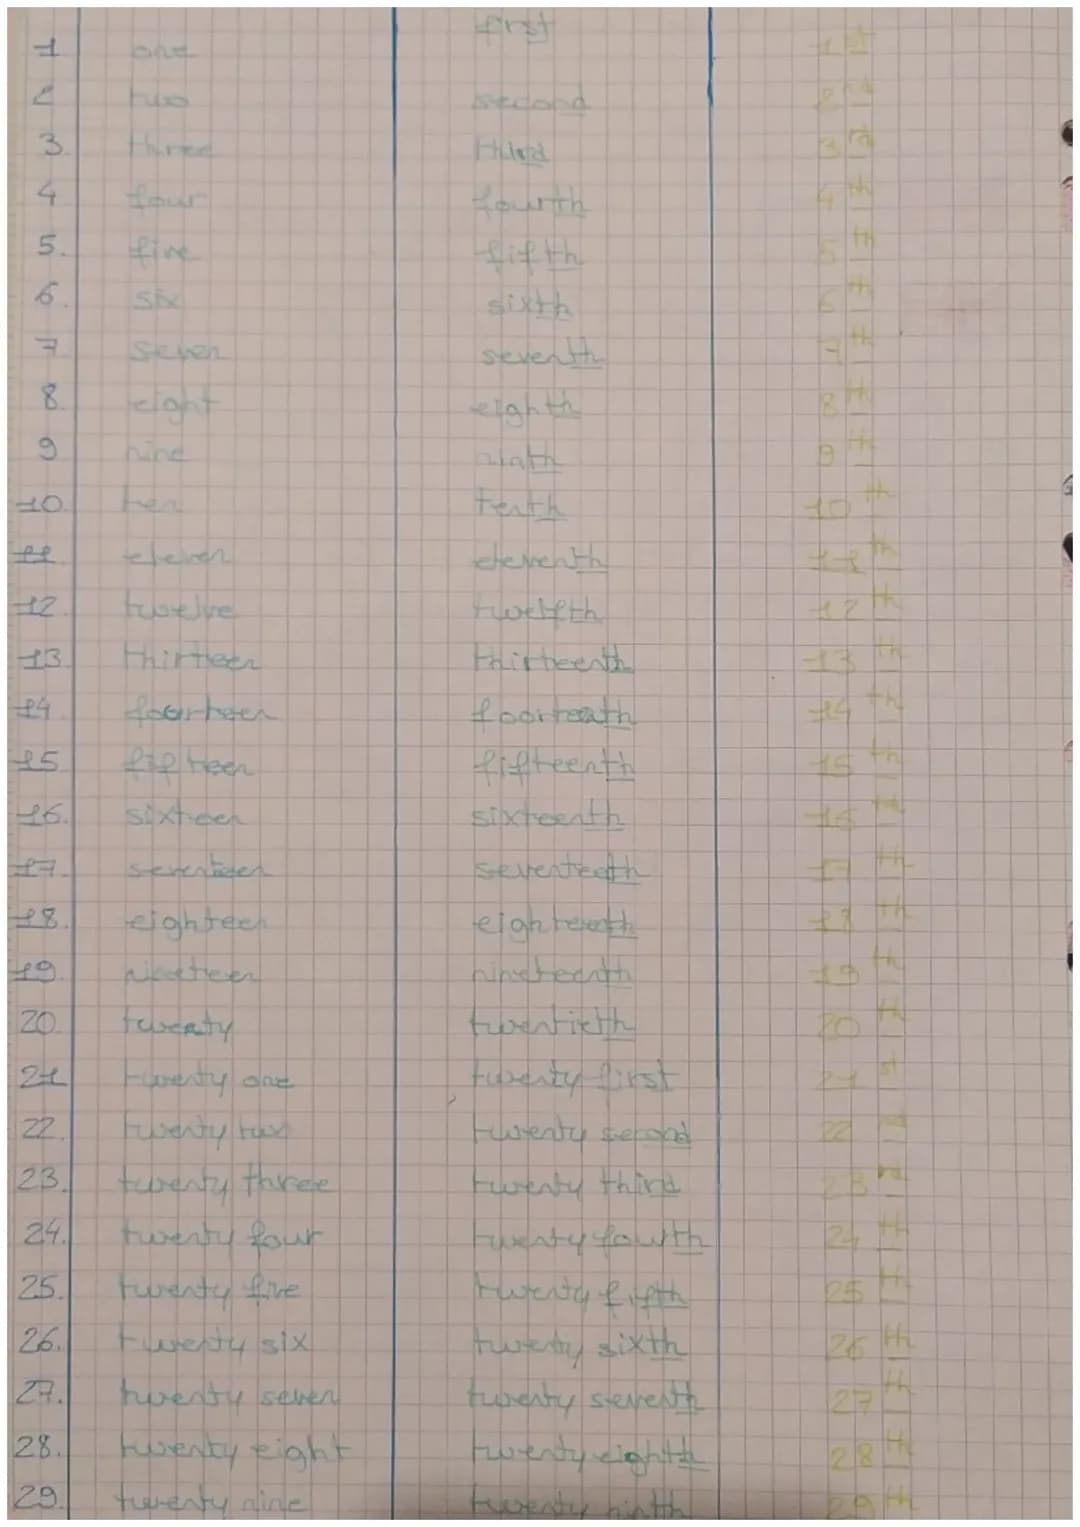 1 one first 1st
2 two second 2nd
3. three third 3rd
4 four fourth 4th
5. five fifth 5th
6. six sixth 6th
7 seven seventh 7th
8. eight eighth 8th
9 nine ninth 9th
10. ten tenth 10th
11 eleven eleventh 11th
12. twelve twelfth 12th
13. thirteen thirteenth 13th
14 14th
15 fifteen fifteenth 15th
16. sixteen sixteenth 16th
17. seventeen 17th
18. eighteen 18th
19. nineteen nineteenth 19th
20. twenty 20th
21 twenty one twenty first 21st
22. twenty two twenty second 22nd
23. twenty three twenty third 23rd
24. twenty four twenty fourth 24th
25. twenty five twenty fifth 25th
26. twenty six twenty sixth 26th
27. twenty seven twenty seventh 27th
28. twenty eight twenty eighth 28th
29. twenty nine twenty ninth 29th